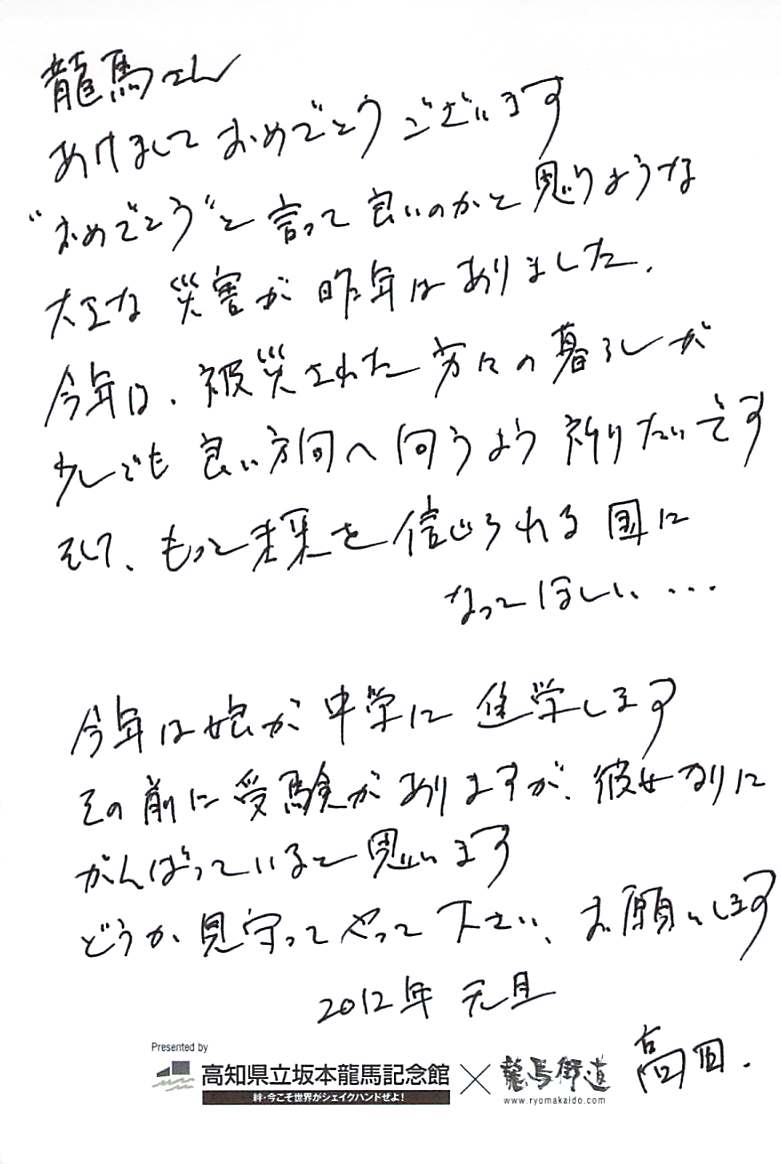 龍馬さん
あけまして おめでとう ございます
"おめでとう"と言って良いのかと思うような
大きな災害が昨年はありました。
今年は、被災された方々の暮らしが
少しでも良い方向へ向うよう祈りたいです
そして、もっと未来を信じられる国に
なってほしい…
今年は娘が中学に進学します
その前に受験がありますが、彼女なりに
がんばっていると思います
どうか見守ってやって下さい、お願いします
2012年 元旦
高田.
Presented by
高知県立坂本龍馬記念館 × 龍馬街道
絆・今こそ世界がシェイクハンドぜよ!
www.ryomakaido.com